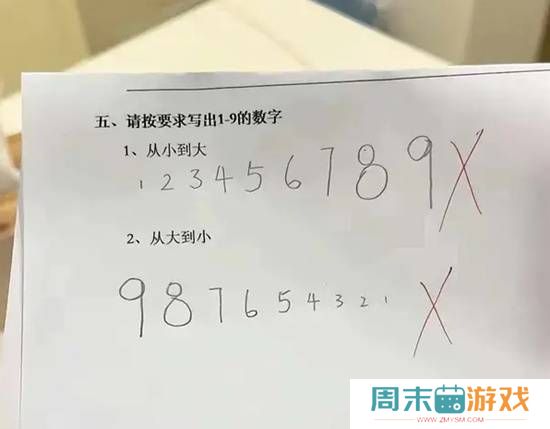 五、请按要求写出1-9的数字
1、从小到大
1 2 3 4 5 6 7 8 9 X
2、从大到小
9 8 7 6 5 4 3 2 1 X
周末游戏
WWW.ZMYSM.COM